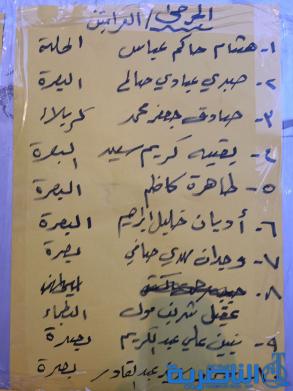 الجرحى / الراقدين
١- هشام حاكم عباس الحلة
٢- صبري عبادي صالح البصرة
٣- صادق جعفر محمد كربلاء
٤- يقينه كريم سعيد البصرة
٥- طاهرة كاظم البصرة
٦- أديان خليل ابراهيم البصرة
٧- وجدان مهدي صافي بصرة
٨-
عقيل شريف البطحاء
٩- علي عبد الكريم بصرة
عبد القادر بصرة
الناصرية